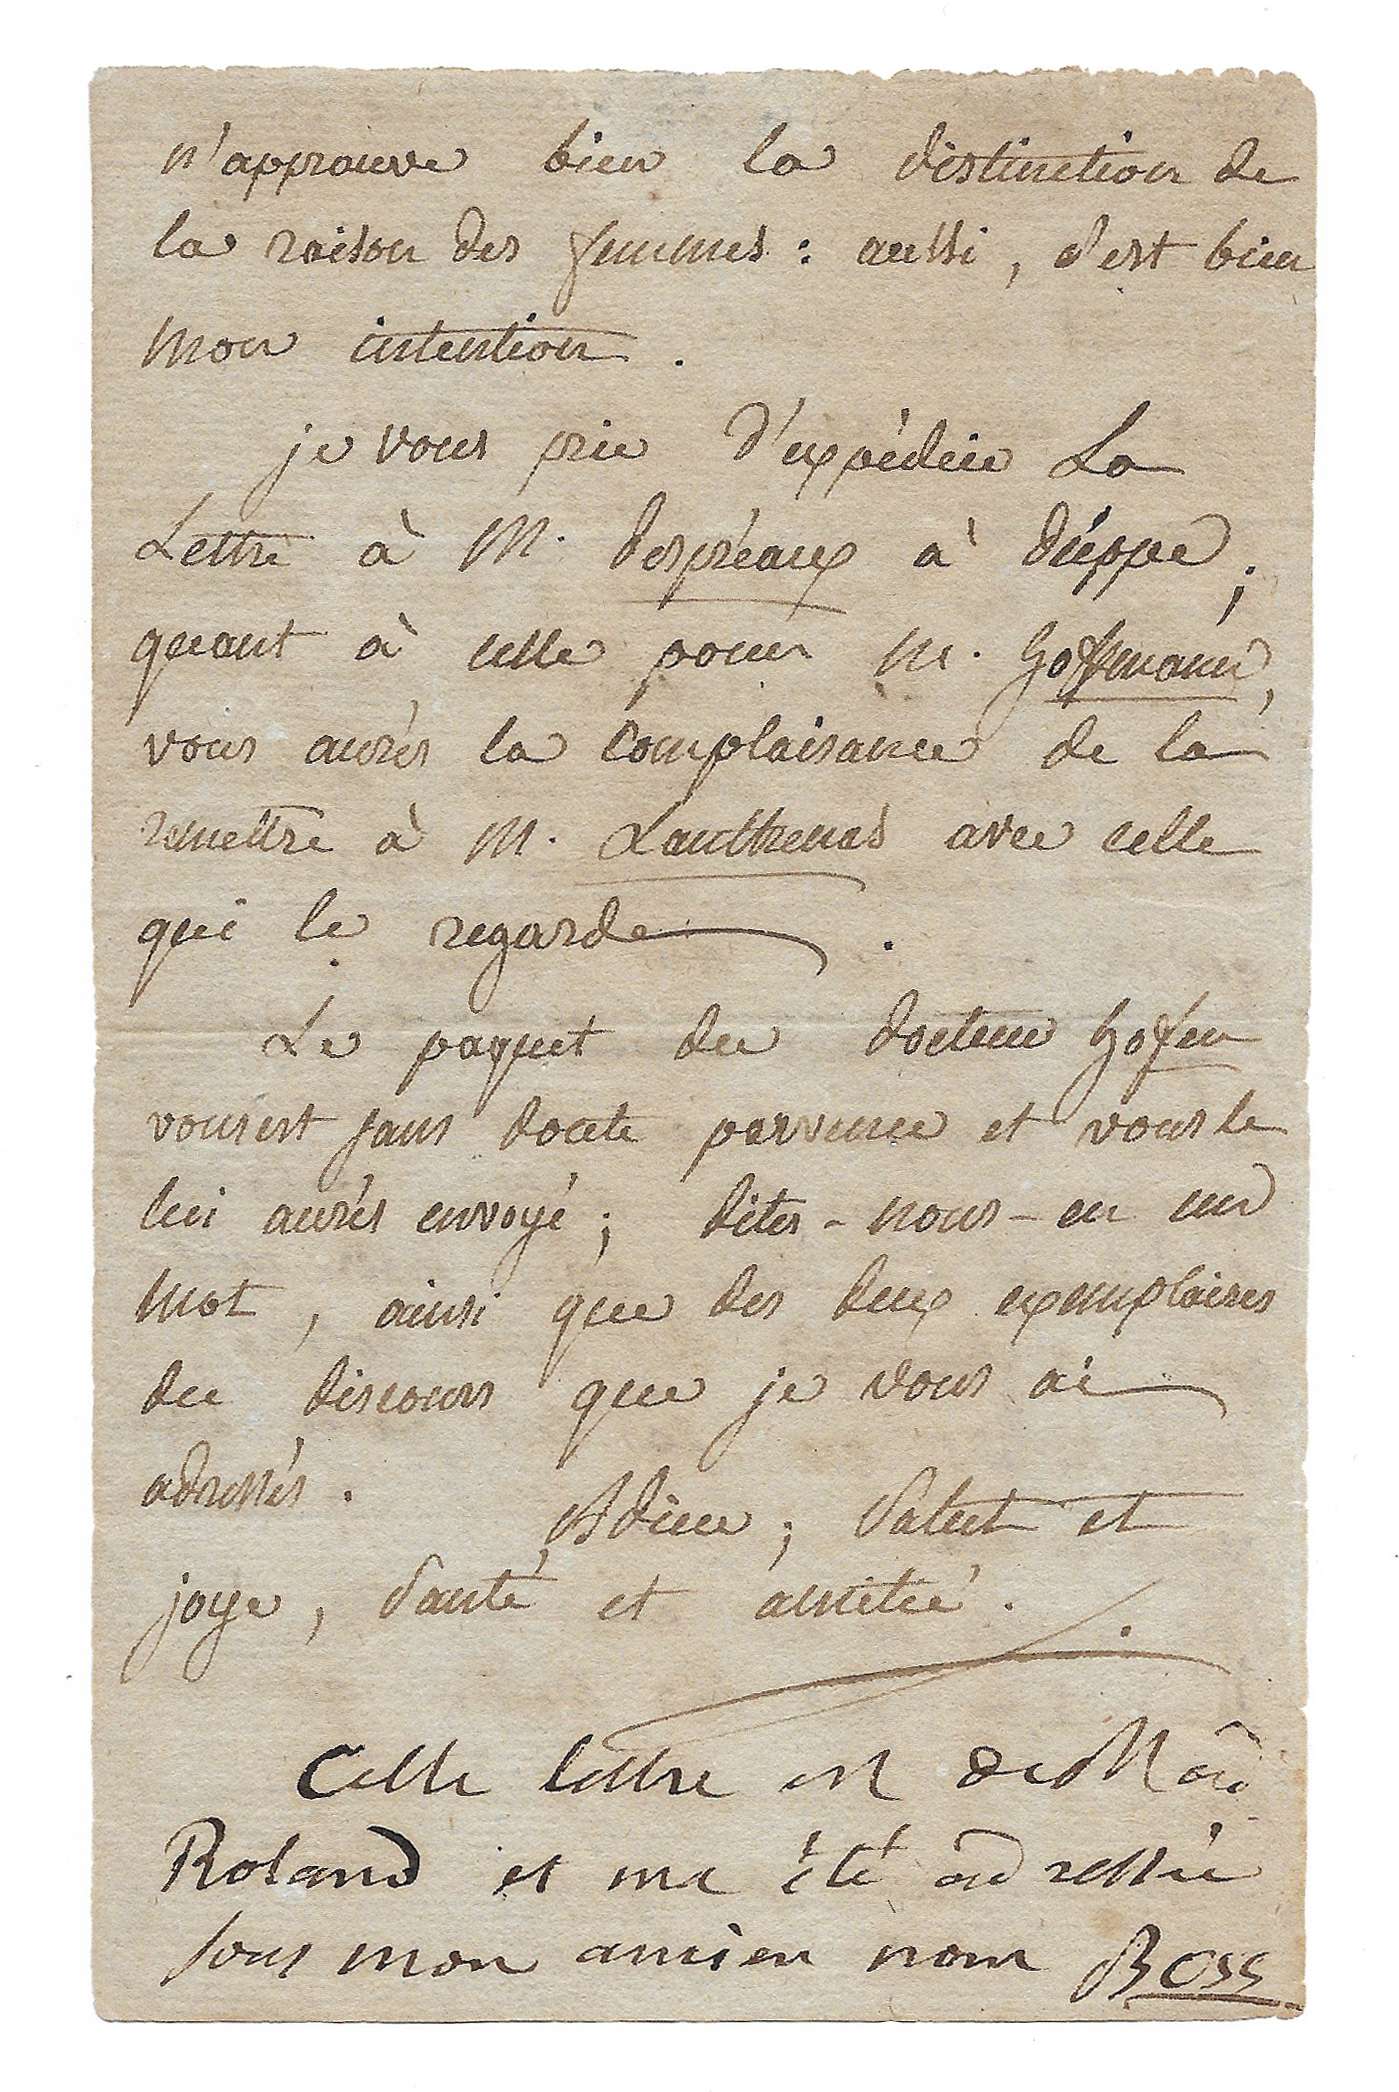 n'approuve bien la distinction de
la raison des femmes : aussi, c'est bien
mon intention.
je vous prie d'expédier La
Lettre à M. despréaux à dieppe ;
quant à celle pour M. hoffmann,
vous aurés la complaisance de la
remettre à M. Lanthenas avec celle
qui le regarde.
Le paquet du docteur hofen
vous est sans doute parvenu et vous le
lui aurés envoyé ; dites-nous-en un
mot, ainsi que des deux exemplaires
du discours que je vous ai
adressés.
Adieu ; salut et
joye, santé et amitié.
Cette lettre est de Mad
Roland et ma été adressée
sous mon ancien nom Bosc